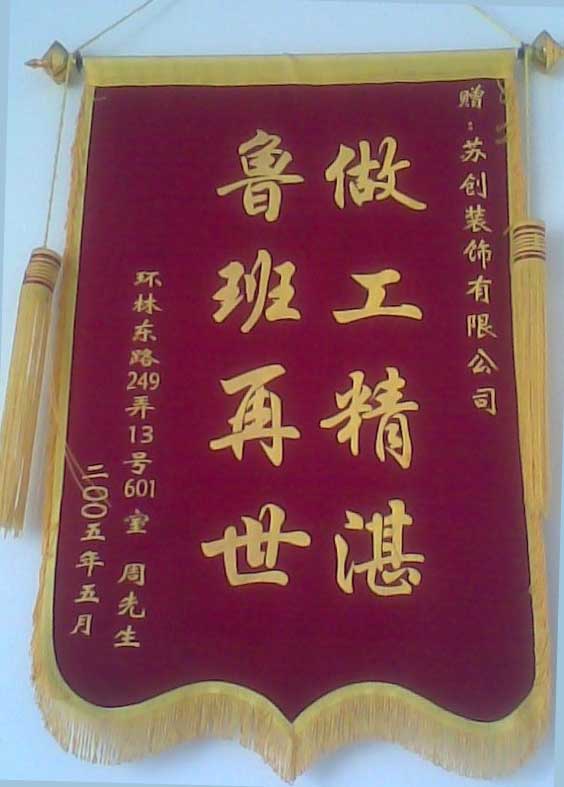 赠：苏创装饰有限公司
做工精湛
鲁班再世
环林东路249弄13号601室 周先生
二00五年五月